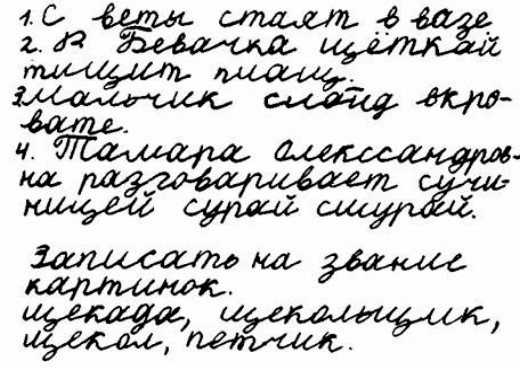 1. С веты стаят в вазе
2. В Бевачка щёткай
тищит плащ.
3. Мальчик слояд вкро-
вате.
4. Тамара Олекссандров-
на разговаривает сучи-
ницей сурай сшурай.
Записать на звание
картинок.
щекада, щекольщик,
щекол, петчик.